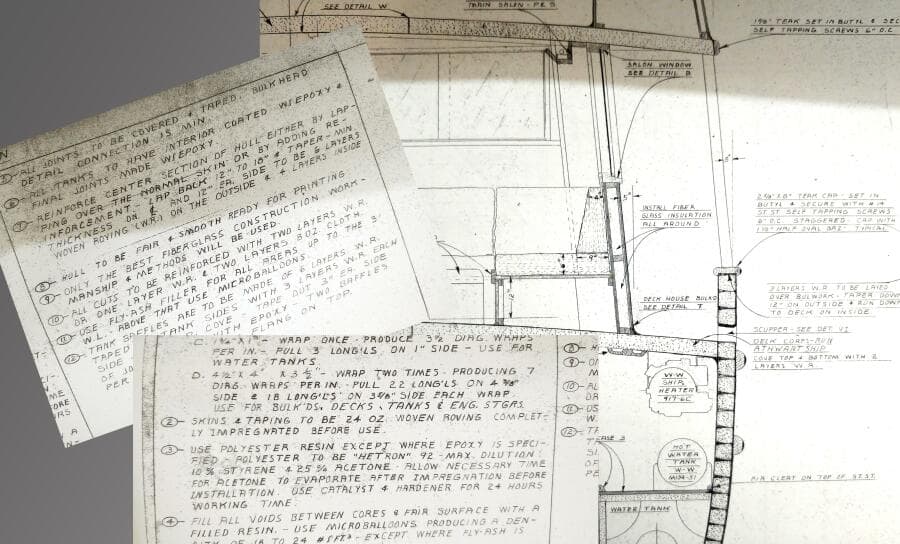 SEE DETAIL W
MAIN SALON - P & S
1⅜" TEAK SET IN BUTYL & SEC
SELF TAPPING SCREWS 6" O.C.
SALON WINDOW
SEE DETAIL B
5"
INSTALL FIBER
GLASS INSULATION
ALL AROUND
5"
12"
DECK HOUSE BULKD
SEE DETAIL T
BUTYL & SECURE WITH #14
ST. ST SELF TAPPING SCREWS
6" O.C. STAGGERED. CAP WITH
1½" HALF OVAL BRZ. TYPICAL
3 LAYERS W.R. TO BE LAYED
OVER BULWORK - TAPER DOWN
12" ON OUTSIDE & RUN DOWN
TO DECK ON INSIDE.
SCUPPER - SEE DET. V1
DECK CORES - RUN
ATHWARTSHIP
COVE TOP & BOTTOM WITH 2
LAYERS W.R.
W-W
SHIP
HEATER
HOT
WATER
TANK
W-W
AIR CLEAT ON TOP OF ST. ST.
WATER TANK
ALL JOINTS TO BE COVERED & TAPED. BULKHEAD
DETAIL CONNECTION IS MIN.
6- ALL TANKS TO HAVE INTERIOR COATED W/EPOXY &
FINAL JOINTS MADE W/EPOXY.
7- REINFORCE CENTER SECTION OF HULL EITHER BY LAP-
PING OVER THE NORMAL SKIN OR BY ADDING RE-
INFORCEMENT - LAP BACK 12" TO 18" & TAPER - MIN.
THICKNESS ON ℄ AND 12" EA. SIDE TO BE 6 LAYERS
WOVEN ROVING (W.R.) ON THE OUTSIDE & 4 LAYERS INSIDE
8- HULL TO BE FAIR & SMOOTH READY FOR PAINTING
9- ONLY THE BEST FIBERGLASS CONSTRUCTION WORK-
MANSHIP & METHODS WILL BE USED.
10- ALL CUTS TO BE REINFORCED WITH TWO LAYERS W.R.
OR ONE LAYER W.R. & TWO LAYERS 8 OZ. CLOTH.
11- USE FLY-ASH FILLER FOR ALL AREAS UP TO THE
W.L. ABOVE THAT USE MICROBALLOONS.
12- TANK BAFFLES ARE TO BE MADE OF 6 LAYERS W.R.
TAPED TO TANK SIDES WITH 3 LAYERS W.R. EACH
COVE TAPE OUT 3" EA. SIDE
WITH EPOXY - TWO BAFFLES
FLANG ON TOP.
C. 1½" X 1" - WRAP ONCE - PRODUCE 3½ DIAG. WRAPS
PER IN. - PULL 3 LONG'LS, ON 1" SIDE - USE FOR
WATER TANKS.
D. 4½" X 4" X 3½" - WRAP TWO TIMES - PRODUCING 7
DIAG. WRAPS PER IN. - PULL 22 LONG'LS ON 4⅜"
SIDE & 18 LONG'LS ON 3⅝" SIDE EACH WRAP.
USE FOR BULK'DS, DECKS, TANKS & ENG. STGRS.
2- SKINS & TAPING TO BE 24 OZ. WOVEN ROVING COMPLET-
LY IMPREGNATED BEFORE USE.
3- USE POLYESTER RESIN EXCEPT WHERE EPOXY IS SPECI-
FIED - POLYESTER TO BE "HETRON" 92 - MAX. DILUTION:
10% STYRENE & 2.5% ACETONE - ALLOW NECESSARY TIME
FOR ACETONE TO EVAPORATE AFTER IMPREGNATION BEFORE
INSTALLATION. USE CATALYST & HARDENER FOR 24 HOURS
WORKING TIME.
4- FILL ALL VOIDS BETWEEN CORES & FAIR SURFACE WITH A
FILLED RESIN. - USE MICROBALLOONS PRODUCING A DEN-
SITY OF 18 TO 24 #S/FT³ - EXCEPT WHERE FLY-ASH IS